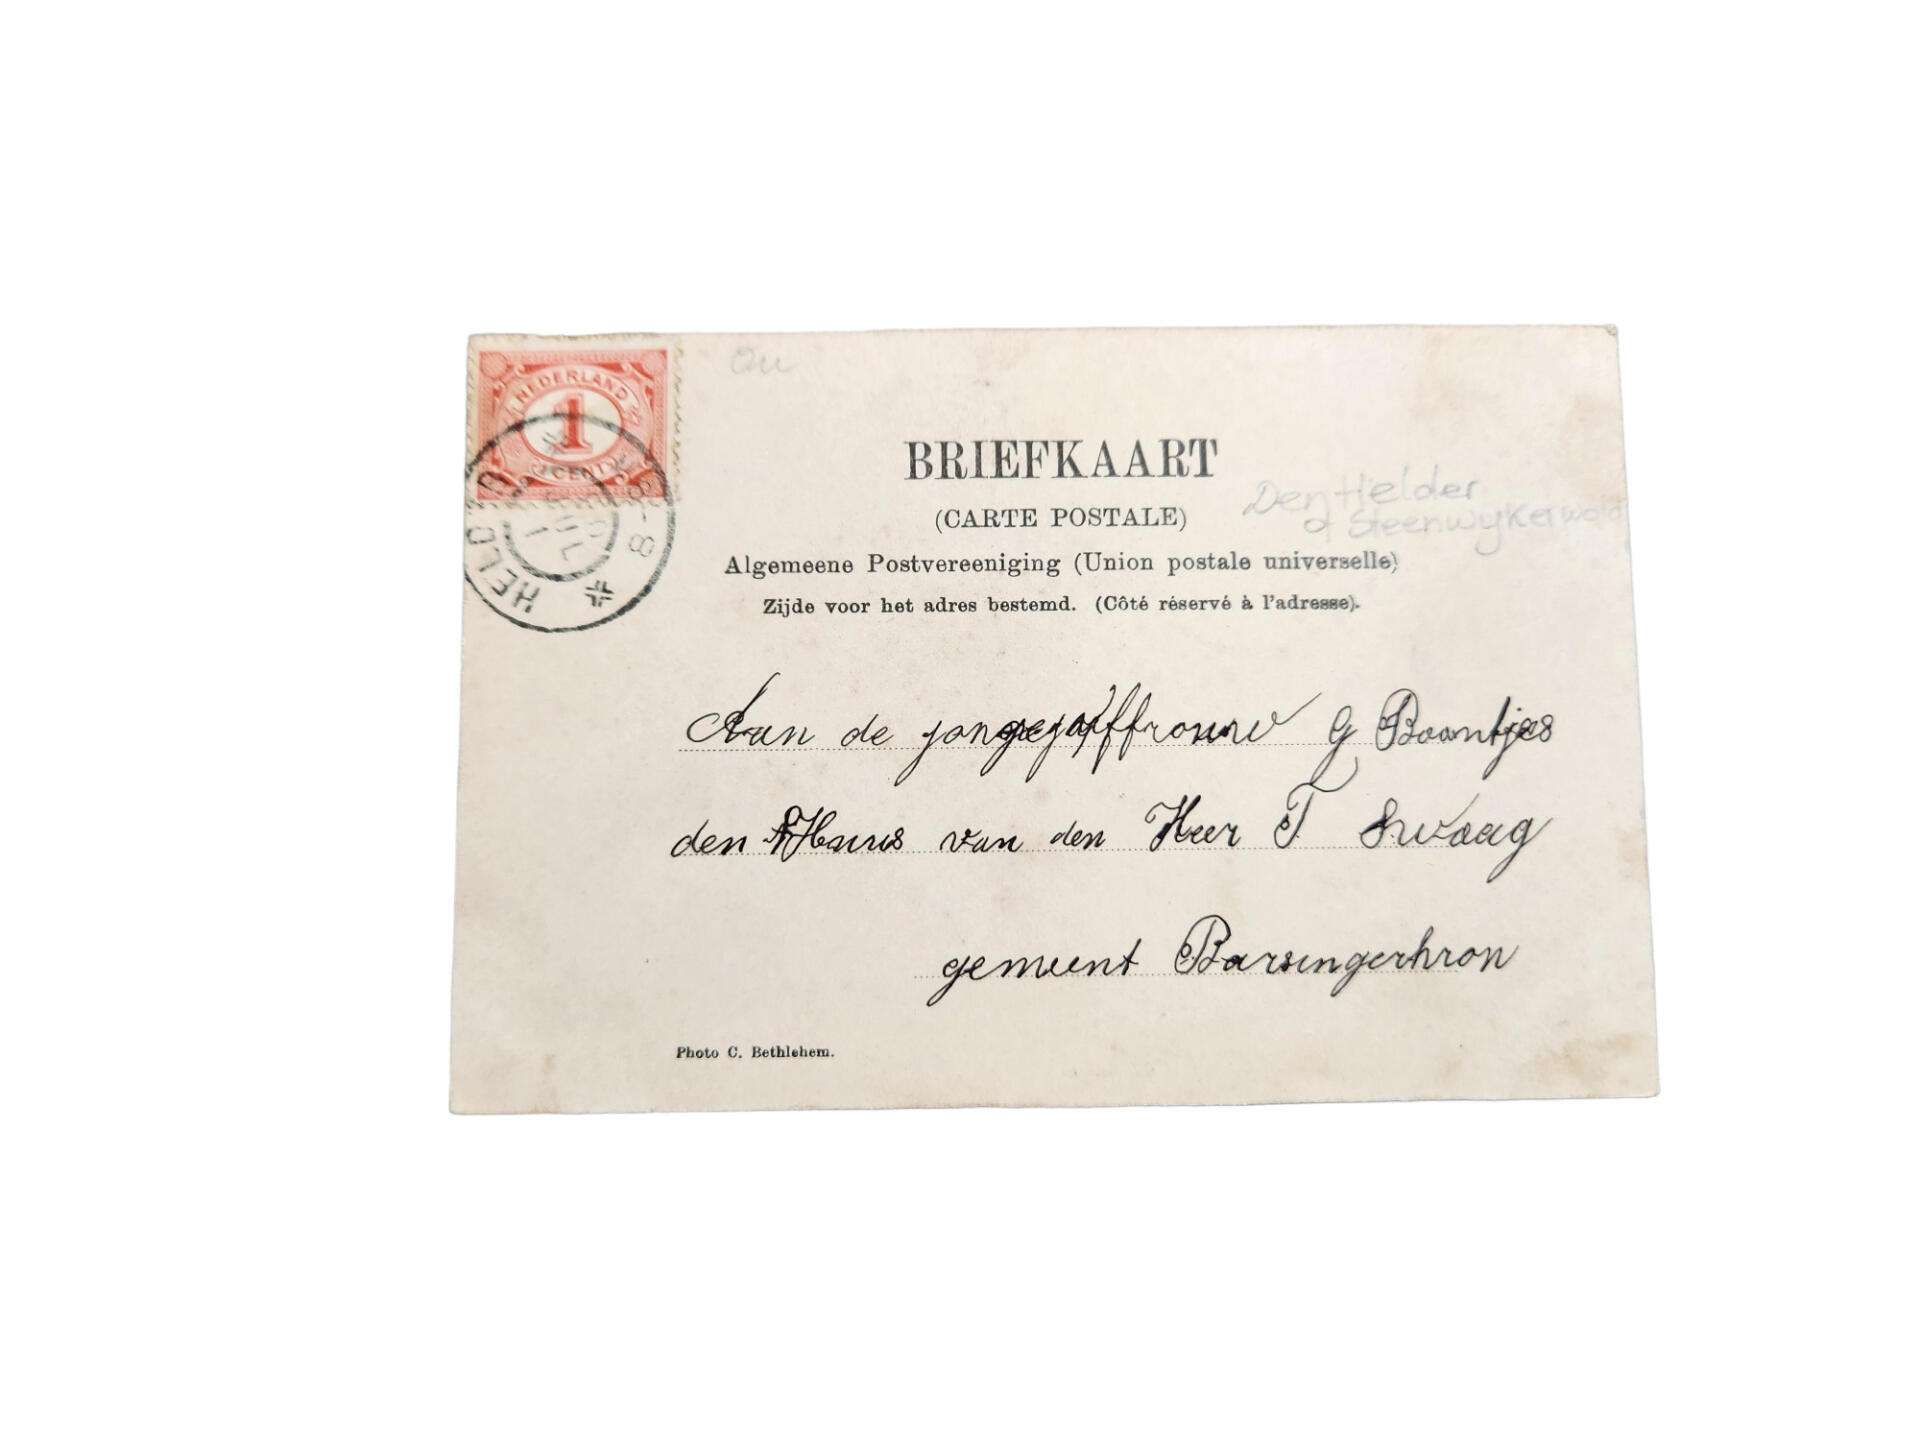 NEDERLAND
1
CENT
HELDER
8-8
JUL
BRIEFKAART
(CARTE POSTALE)
Den Helder
Steenwykerwold
Algemeene Postvereeniging (Union postale universelle)
Zijde voor het adres bestemd. (Côté réservé à l'adresse).
Aan de jongejuffrouw G Baantjes
den Huus van den Heer T Swaag
gemeent Barsingerhron
Photo C. Bethlehem.